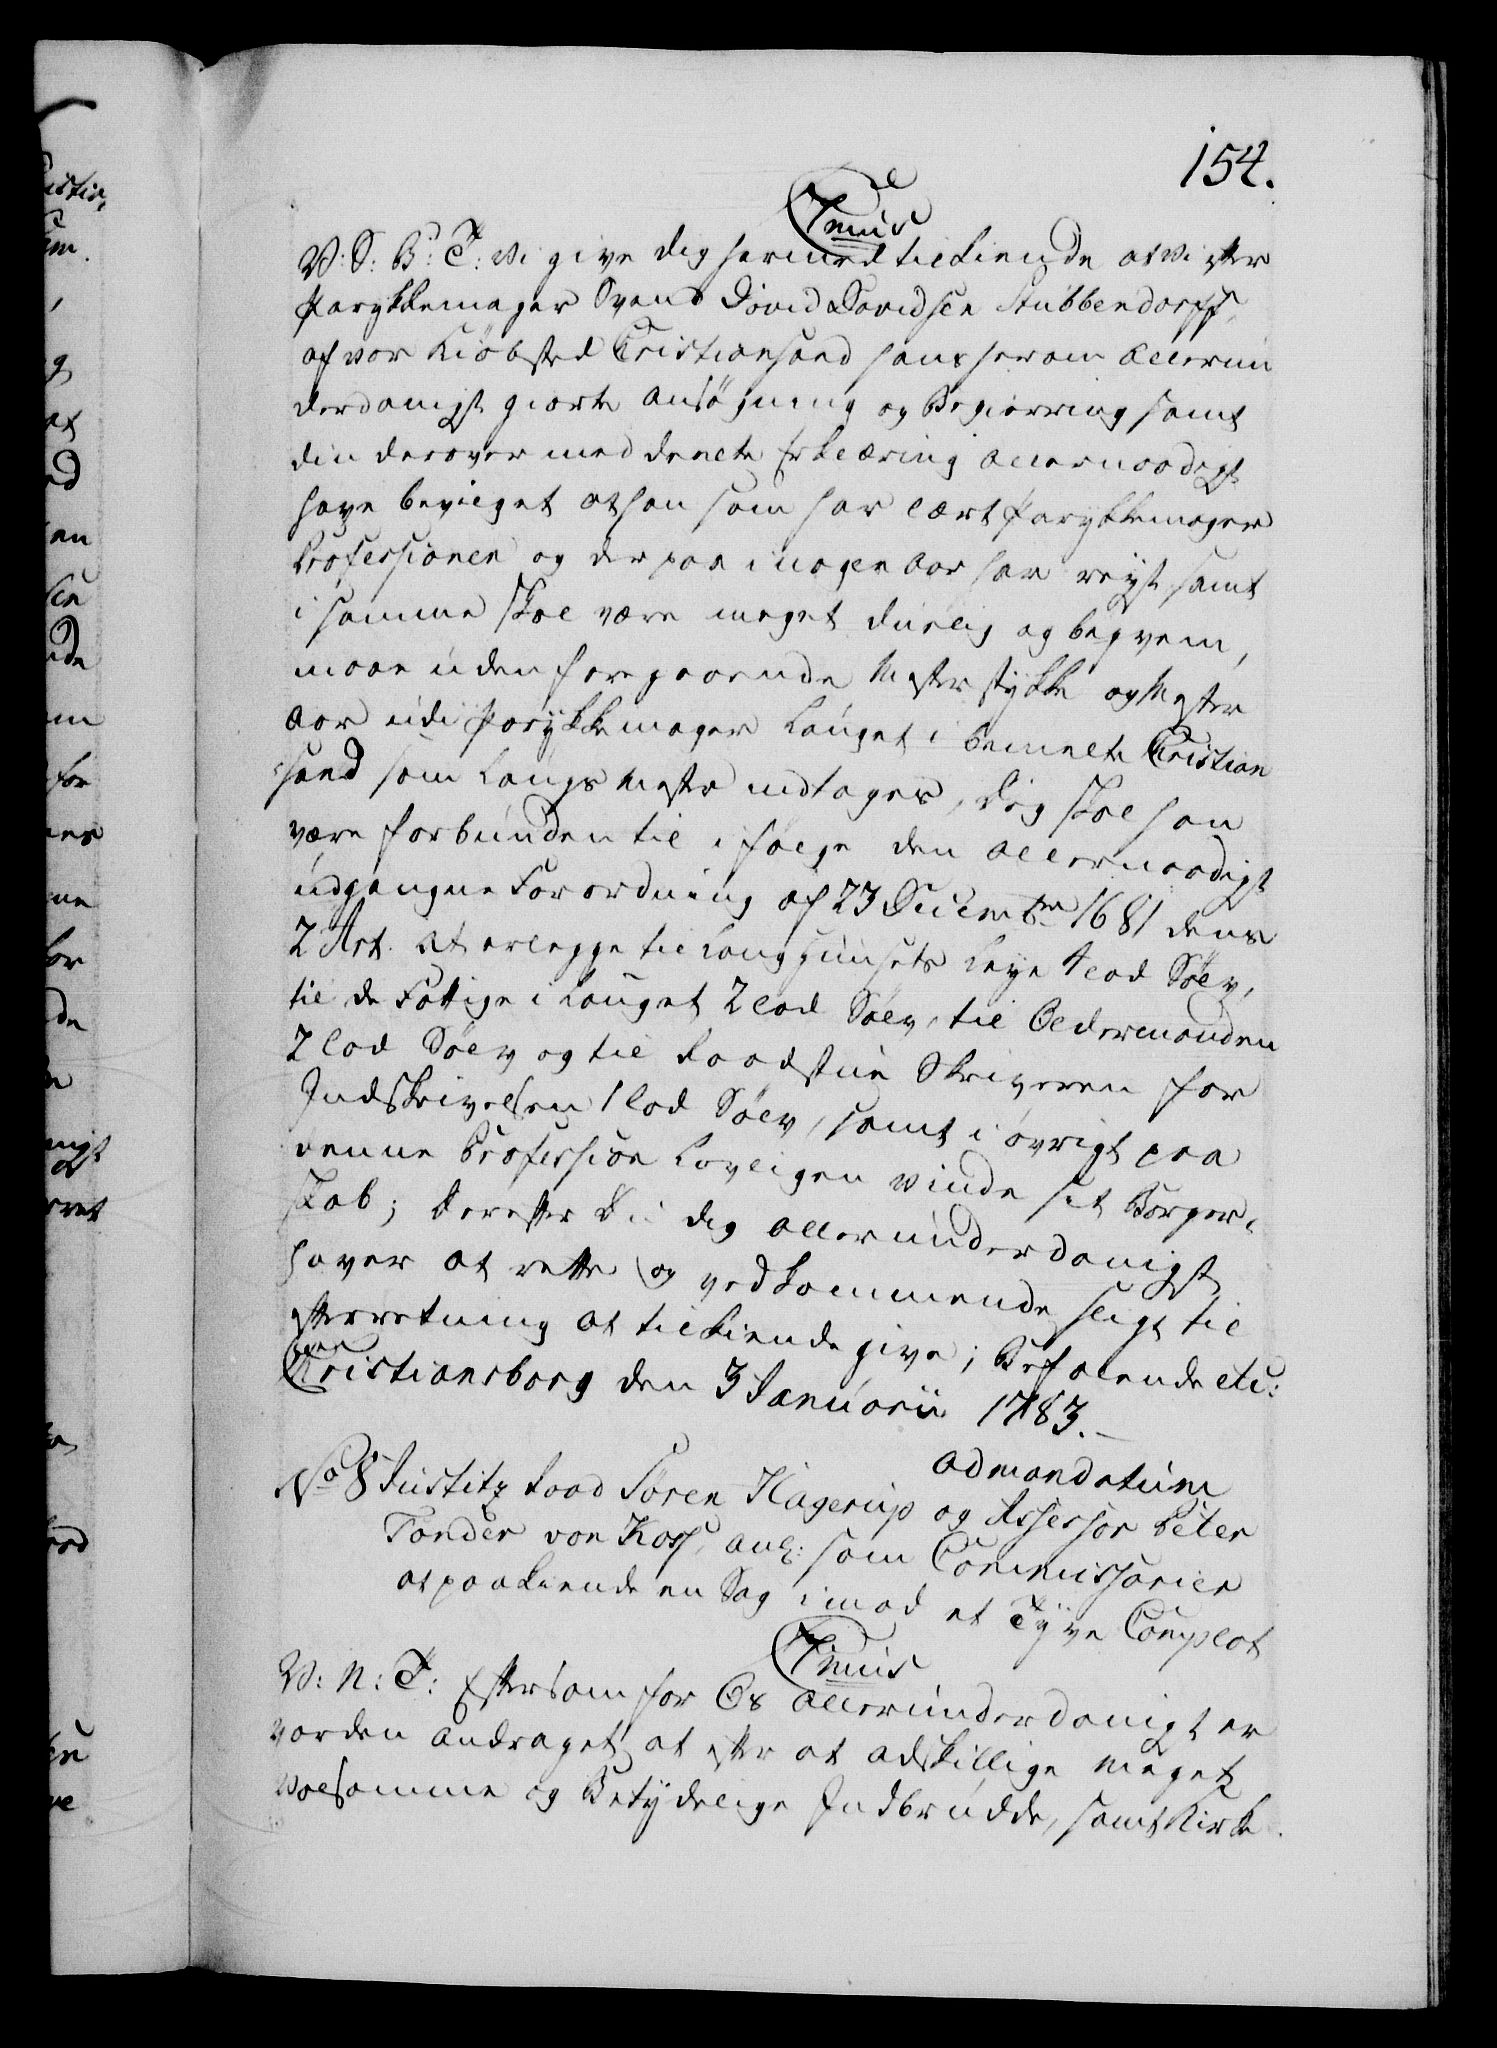 154.
C7mus
W: S: B: T: Vi give dig hermed tilkiende at Vi efter
Parykkemager Svend David Davidsen Stubbendorff,
af vor Kiøbsted Christiansand hans herom allerun
derdanigst giorte Ansøgning og Begiering samt
din derover meddeelte Erklæring allernaadigst
have bevilget at han som har lært Parykkemager
Professionen og derpaa i nogen Aar har reyst samt
i samme skal være meget duelig og beqvem,
maae uden foregaaende Mesterstykke og Mester
Aar udi Parykkemager Lauget i bemelte Christian
sand som Laugs Mester indtages, dog skal han
være forbunden til i følge den allernaadigst
udgangne Forordning af 23 Decembr 1681 dens
2 Art. at erlegge til Laugshuusets Leye 4 lod Sølv,
til de Fattige i Lauget 2 lod Sølv, til Oldermanden
2 lod Sølv og til Raadstue Skriveren for
Indskrivelsen 1 lod Sølv, samt i øvrigt paa
denne Profession lovligen vinde sit Borger-
skab; derefter du dig allerunderdanigst
haver at rette og vedkommende sligt til
efterretning at tilkiende give; Befalende etc:
Christiansborg den 3 Januarii 1783.
ad mandatum
No 8 Justitz Raad Søren Hagerup og Assessor Peter
Fonder von Koss, anl: som Commissarier
at paakiende en Sag imod et Tyve Complot
C7mus
W: N: T: Eftersom for Os allerunderdanigst er
vorden Andraget, at efter at adskillige meget
voldsomme og Betydelige Indbrudde, samt Kirke-